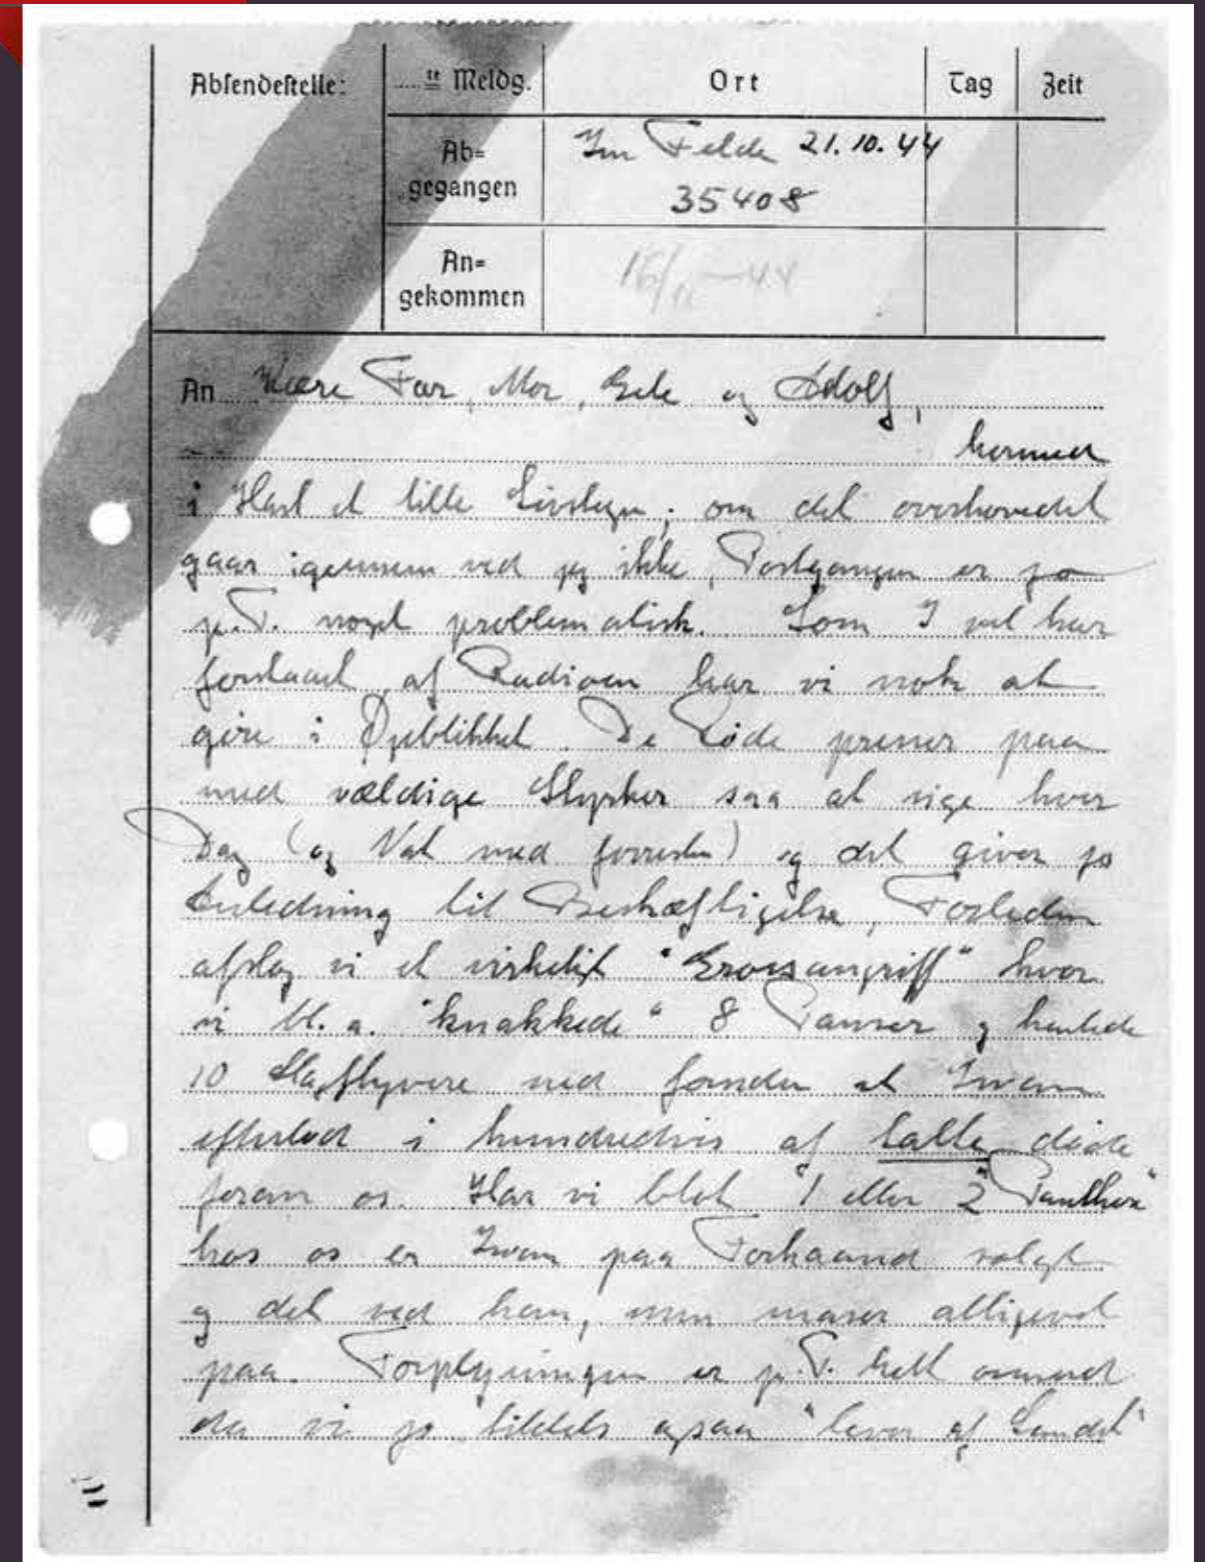 Absendestelle:
....te Meldg.
Ort
Tag
Zeit
Ab=
gegangen
Im Felde 21.10.44
35408
An=
gekommen
16/11-44
An Kære Far, Mor, og Adolf,
hermed
i Hast et lille Livstegn, om det overhovedet
gaar igennem ved jeg ikke, Postgangen er jo
p.T. noget problematisk. Som I vel har
forstaaet af Radioen har vi nok at
göre i Øjeblikket. De Röde presser paa
med vældige Styrker saa at sige hver
Dag (og Nat med forresten) og det giver jo
Anledning til Beskæftigelse, Forleden
afslog vi et virkeligt "Grossangriff" hvor
vi bl.a. "knakkede" 8 Panser og hentede
10 Slagflyvere ned foruden at Iwan
efterlod i hundredvis af talte döde
foran os. Har vi blot 1 eller 2 "Panther"
hos os er Iwan paa Forhaand solgt
og det ved han, men maser alligevel
paa. Forplejningen er p.T. helt
da vi jo tildels ogsaa "lever af Landet"